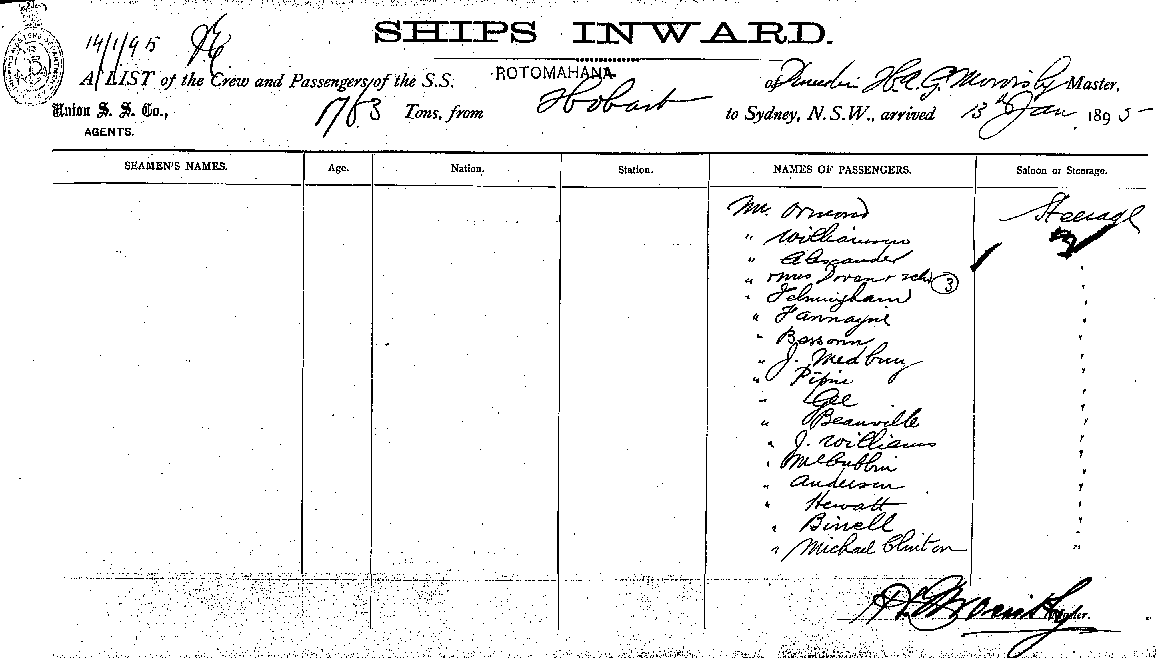 SHIPS INWARD.
14/1/95
A LIST of the Crew and Passengers of the S.S. ROTOMAHANA of Dunedin H.A.G. Morrisby Master,
Union S. S. Co., AGENTS. 1763 Tons, from Hobart to Sydney, N.S.W., arrived 13th Jan 1895
SEAMEN'S NAMES. Age. Nation. Station. NAMES OF PASSENGERS. Saloon or Steerage.
Mr. Ormond Steerage
" Williamson
" Alexander "
" & Mrs Doran & 3
" Felmingham "
" Fannayne "
" "
" J. Medbury "
" "
" Gee "
" Beauville "
" J. Williams "
" McCubbin "
" Anderson "
" Hewatt "
" Binell "
" Michael Clinton "
Master.